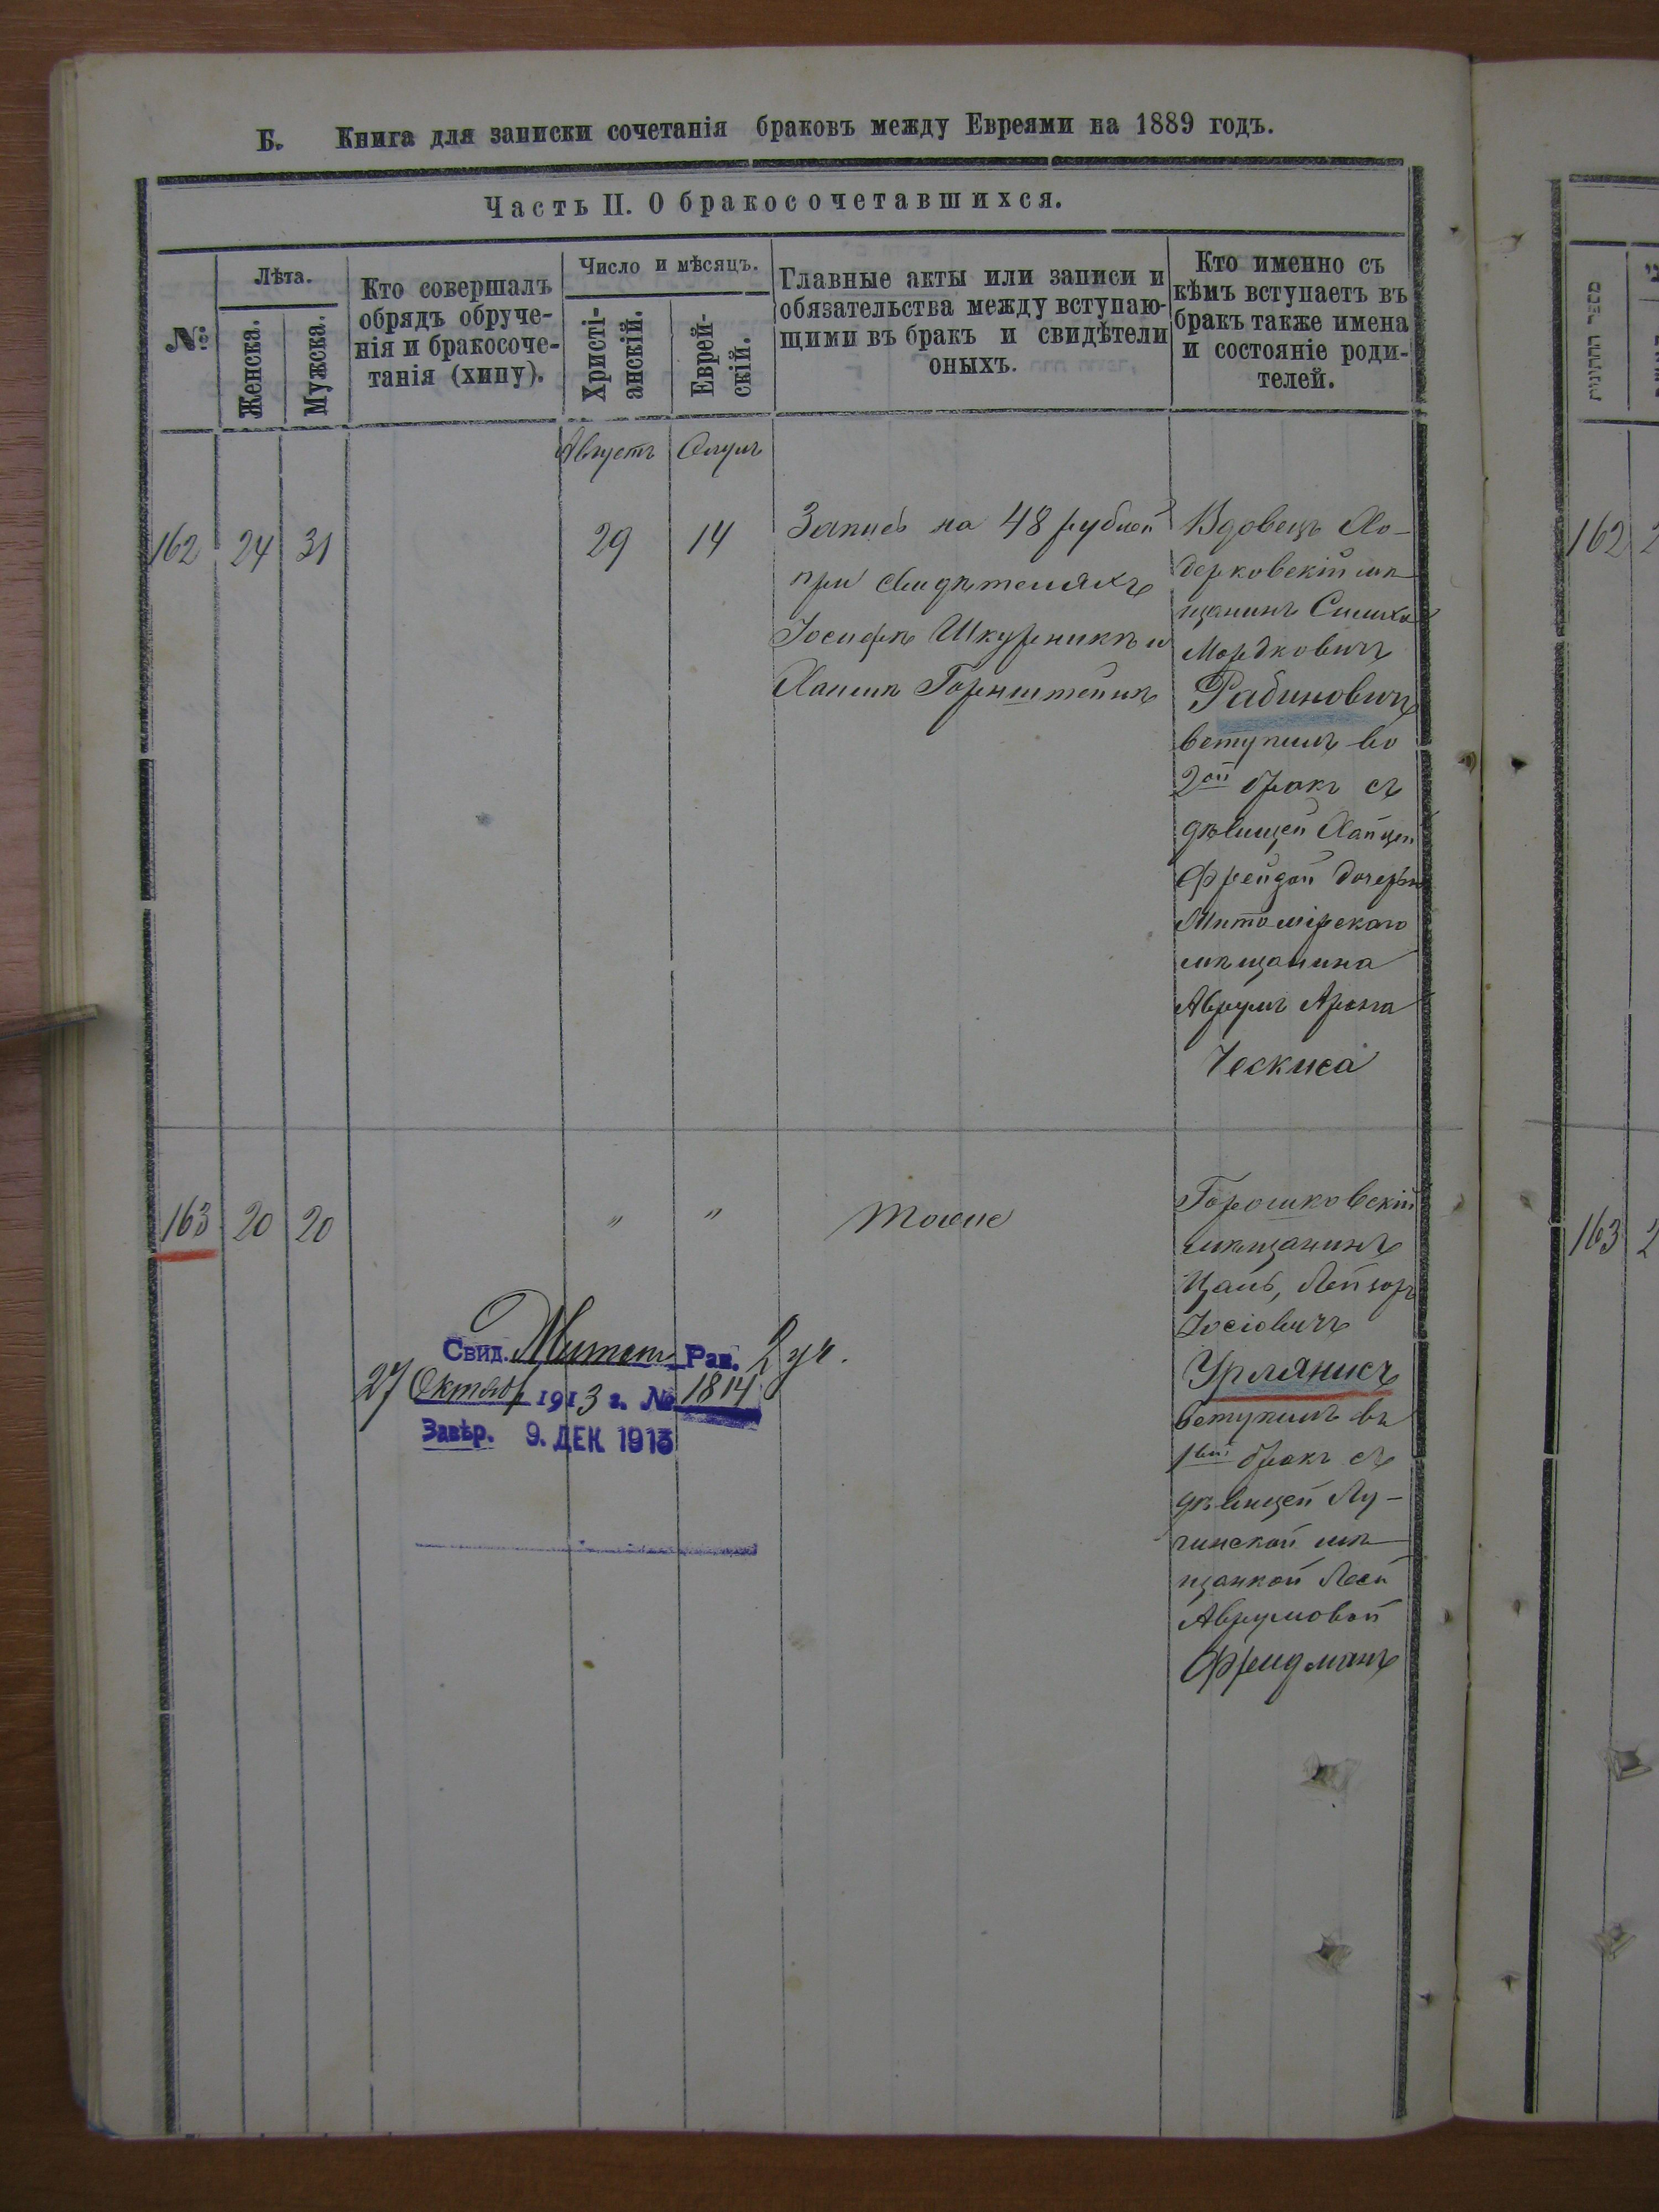 Б. Книга для записки сочетанія браковъ между Евреями на 1889 годъ.
Часть II. О бракосочетавшихся.
№
Лѣта.
Женска.
Мужска.
Кто совершалъ
обрядъ обруче-
нія и бракосоче-
танія (хипу).
Число и мѣсяцъ.
Христі-
анскій.
Еврей-
скій.
Главные акты или записи и
обязательства между вступаю-
щими въ бракъ и свидѣтели
оныхъ.
Кто именно съ
кѣмъ вступаетъ въ
бракъ также имена
и состояніе роди-
телей.
Августъ Елулъ
162 24 31 29 14
Запись на 48 рублей
при свидѣтеляхъ
Іосифѣ Шкурникѣ и
Хаимѣ Горнштейнѣ
Вдовецъ Хо-
дорковскій мѣ-
щанинъ Симха
Мордковичъ
Рабиновичъ
вступилъ во
2ой бракъ съ
дѣвицей
Фрейдой дочерью
Житомірскаго
мѣщанина
Аврумъ Арона
Ческиса
163 20 20 " " Тоже
Горошковскій
мѣщанинъ
Лейзоръ
Іосіовичъ
Урлянисъ
вступилъ въ
1вый бракъ съ
дѣвицей Лу-
гинской мѣ-
щанкой
Аврумовой
Фридманъ
Свид. Житом. Рав. 2 уч.
27 Октябр 1913 г. № 1814
Завѣр. 9. ДЕК 1913
מספר החתונות
162 2
163 2